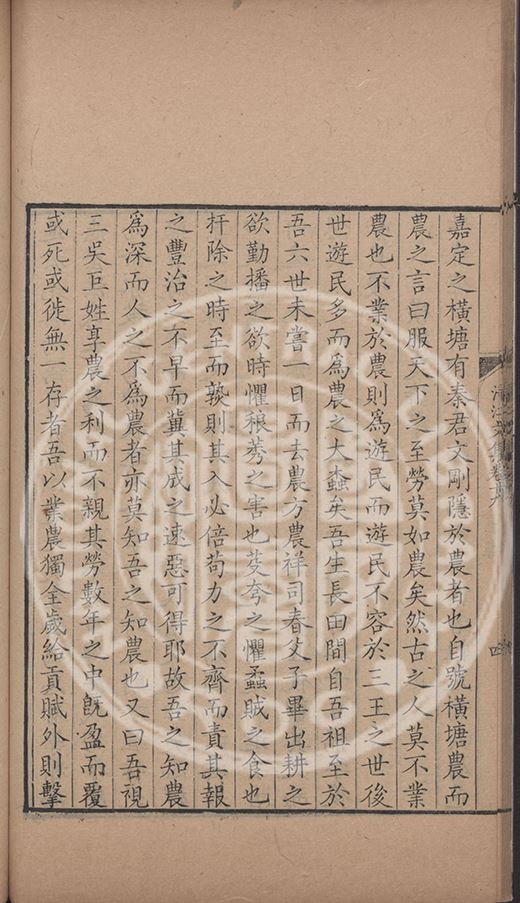 嘉定之橫塘有秦君文剛隱於農者也自號橫塘農而
農之言曰服天下之至勞莫如農矣然古之人莫不業
農也不業於農則為遊民而遊民不容於三王之世後
世遊民多而為農之大蠹矣吾生長田間自吾祖至於
吾六世未嘗一日而去農方農祥司春父子畢出耕之
欲勤播之欲時懼稂莠之害也芟夷之懼蟊賊之食也
扞除之時至而孰則其入必倍苟力之不齊而責其報
之豐治之不早而冀其成之速惡可得耶故吾之知農
為深而人之不為農者亦莫知吾之知農也又曰吾視
三吳巨姓享農之利而不親其勞數年之中既盈而覆
或死或徙無一存者吾以業農獨全歲給貢賦外則擊